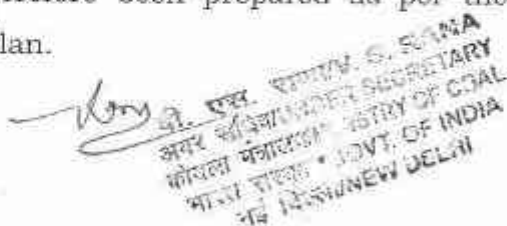 been prepared as per the
lan.
वी. एस. राणा/V. S. RANA
अवर सचिव/UNDER SECRETARY
कोयला मंत्रालय/MINISTRY OF COAL
भारत सरकार * GOVT. OF INDIA
नई दिल्ली/NEW DELHI